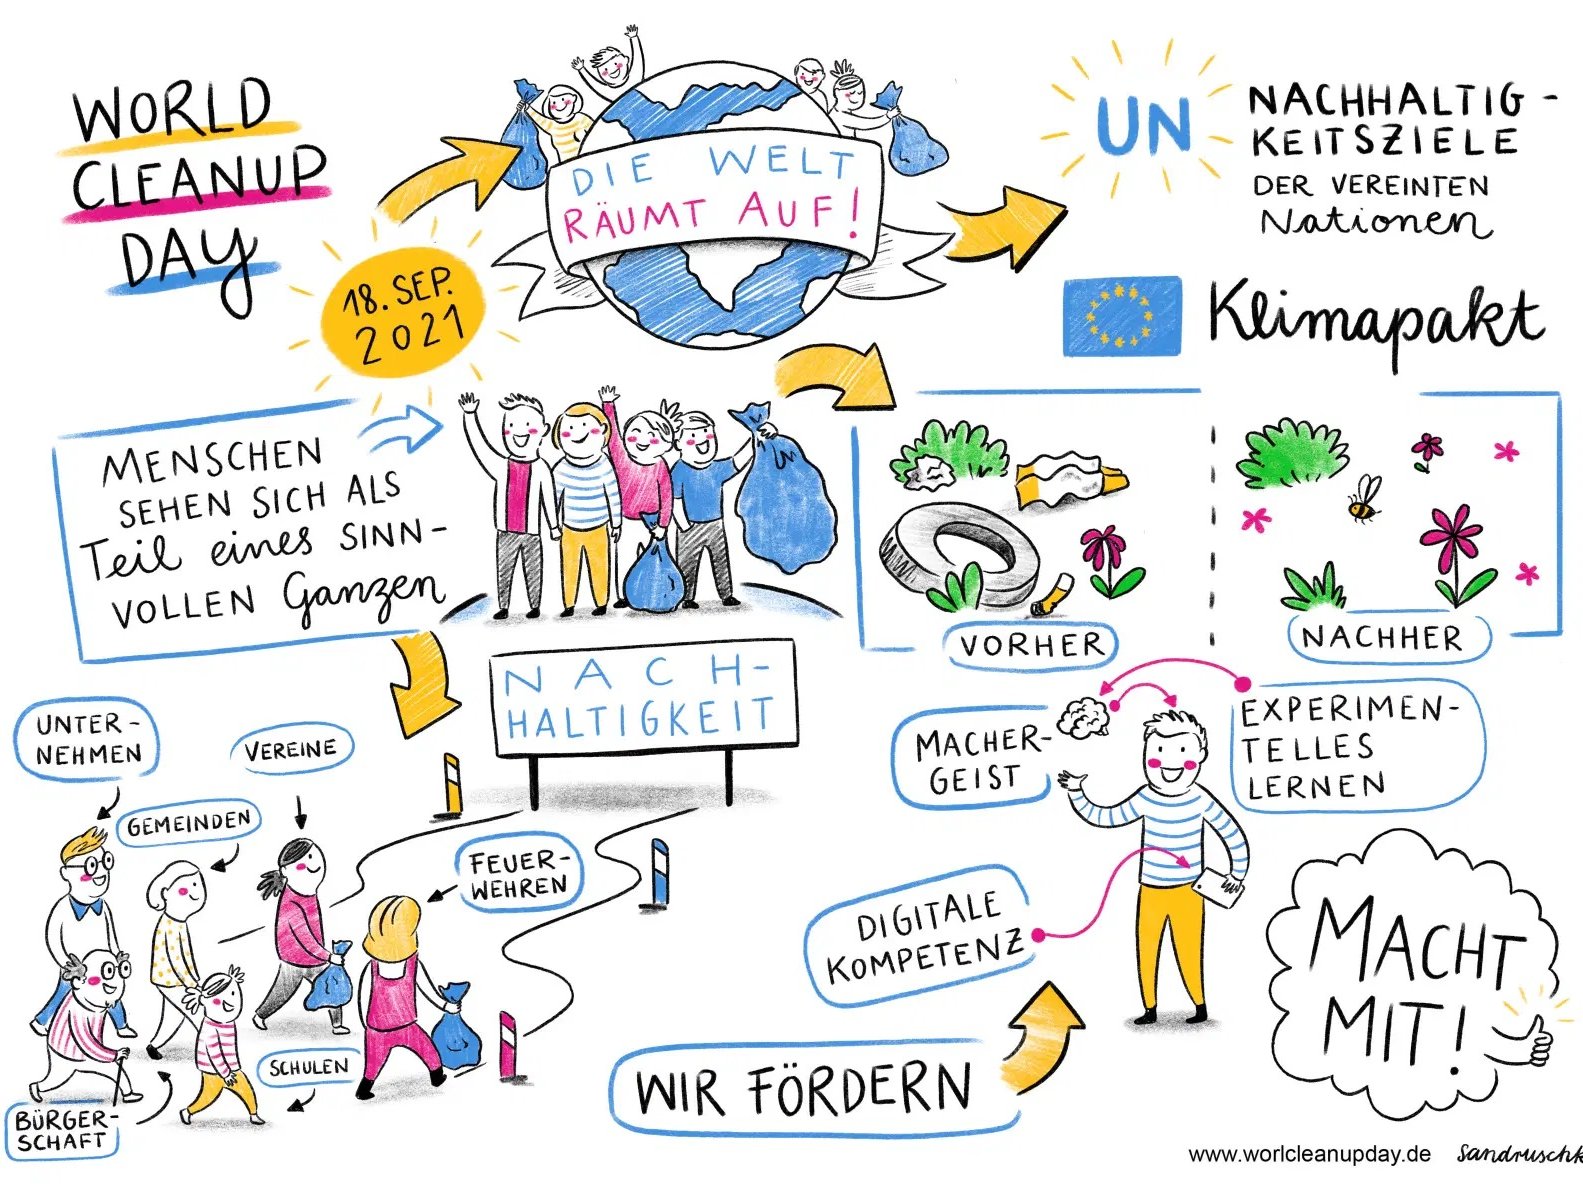 WORLD
CLEANUP
DAY
18. SEP.
2021
DIE WELT
RÄUMT AUF!
UN
NACHHALTIG-
KEITSZIELE
DER VEREINTEN
Nationen
Klimapakt
MENSCHEN
SEHEN SICH ALS
Teil eines SINN-
VOLLEN Ganzen
VORHER
NACHHER
NACH-
HALTIGKEIT
UNTER-
NEHMEN
VEREINE
GEMEINDEN
FEUER-
WEHREN
SCHULEN
BÜRGER-
SCHAFT
MACHER-
GEIST
EXPERIMEN-
TELLES
LERNEN
DIGITALE
KOMPETENZ
WIR FÖRDERN
MACHT
MIT!
www.worlcleanupday.de
sandruschk